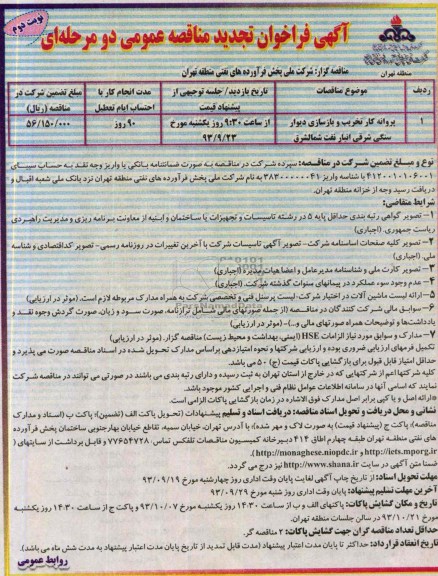 نوبت دوم
آگهی فراخوان تجدید مناقصه عمومی دو مرحله‌ای
منطقه تهران
مناقصه گزار: شرکت ملی پخش فرآورده های نفتی منطقه تهران
ردیف
موضوع مناقصات
تاریخ بازدید/ جلسه توجیهی از پیشنهاد قیمت
مدت انجام کار با احتساب ایام تعطیل
مبلغ تضمین شرکت در مناقصه (ریال)
۱
پروانه کار تخریب و بازسازی دیوار سنگی شرقی انبار نفت شمالشرق
از ساعت ۹:۳۰ روز یکشنبه مورخ ۹۳/۹/۲۳
۹۰ روز
۵۶/۱۵۰/۰۰۰
نوع و مبلغ تضمین شرکت در مناقصه: سپرده شرکت در مناقصه به صورت ضمانتنامه بانکی یا واریز وجه نقد به حساب سیبای
با شناسه واریز به نام شرکت ملی پخش فرآورده های نفتی منطقه تهران نزد بانک ملی شعبه اقبال و
دریافت رسید وجه از خزانه منطقه تهران.
شرایط متقاضی:
۱- تصویر گواهی رتبه بندی حداقل پایه ۵ در رشته تاسیسات و تجهیزات یا ساختمان و ابنیه از معاونت برنامه ریزی و مدیریت راهبردی
ریاست جمهوری. (اجباری)
۲- تصویر کلیه صفحات اساسنامه شرکت- تصویر آگهی تاسیسات شرکت با آخرین تغییرات در روزنامه رسمی- تصویر کداقتصادی و شناسه
ملی. (اجباری)
۳- تصویر کارت ملی و شناسنامه مدیرعامل و اعضا هیات مدیره (اجباری)
۴- عدم وجود سوء عملکرد در پیمانهای سنوات گذشته شرکت. (اجباری)
۵- ارائه لیست ماشین آلات در اختیار شرکت- لیست پرسنل فنی و تخصصی شرکت به همراه مدارک مربوطه لازم است. (موثر در ارزیابی)
۶- سوابق مالی شرکت کنندگان در مناقصه (از جمله صورتهای مالی شامل ترازنامه، صورت سود و زیان، صورت گردش وجوه نقد و
یادداشت‌ها و توضیحات همراه صورتهای مالی و...)- (موثر در ارزیابی)
۷- مدارک و سوابق مورد نیاز الزامات HSE (ایمنی، بهداشت و محیط زیست) مناقصه گزار. (موثر در ارزیابی)
تکمیل فرمهای ارزیابی ضروری بوده و ارزیابی شرکتها و نحوه امتیازدهی براساس مدارک تحویل شده در اسناد مناقصه صورت می پذیرد و
حداقل امتیاز قابل قبول برای بازگشایی پاکات قیمت (ج) ۵۰ می باشد.
کلیه شرکتها اعم از شرکتهایی که در خارج از استان تهران به ثبت رسیده و دارای رتبه بندی می باشند در صورتی می توانند در مناقصه شرکت
نمایند که اسامی آنها در سامانه اطلاعات عوامل نظام فنی و اجرایی کشور موجود باشد.
*ارائه اصل و یا کپی برابر اصل مدارک فوق الاشاره در زمان بازگشایی پاکات الزامی است.
نشانی و محل دریافت و تحویل اسناد مناقصه: دریافت اسناد و تسلیم پیشنهادات (تحویل پاکت الف (تضمین)؛ پاکت ب (اسناد و مدارک
مناقصه)؛ پاکت ج (پیشنهاد قیمت) به صورت لاک و مهر شده)، با آدرس تهران، خیابان سمیه، تقاطع خیابان بهارجنوبی ساختمان پخش فرآورده
های نفتی منطقه تهران طبقه چهارم اطاق ۴۱۴ دبیرخانه کمیسیون مناقصات تلفکس تماس: ۷۷۶۵۴۷۲۸ و قابل برداشت از سایتهای (
http://iets.mporg.ir) و (http://monaghese.niopdc.ir).
ضمنا متن آگهی در سایت http://www.shana.ir نیز درج می گردد.
مهلت تحویل اسناد: از تاریخ چاپ آگهی لغایت پایان وقت اداری روز چهارشنبه مورخ ۹۳/۰۹/۱۹
آخرین مهلت تسلیم پیشنهاد: پایان وقت اداری روز شنبه مورخ ۹۳/۰۹/۲۹
تاریخ و مکان گشایش پاکات: پاکتهای الف و ب از ساعت ۱۴:۳۰ روز یکشنبه مورخ ۹۳/۱۰/۰۷ و پاکت ج از ساعت ۱۴:۳۰ روز یکشنبه
مورخ ۹۳/۱۰/۲۱ در سالن جلسات منطقه تهران.
حداقل تعداد مناقصه گران جهت گشایش پاکات: ۲ مناقصه گر.
تاریخ انعقاد قرارداد: حداکثر تا پایان مدت اعتبار پیشنهاد (مدت قابل تمدید از تاریخ پایان مدت اعتبار پیشنهاد به مدت شش ماه می باشد).
روابط عمومی